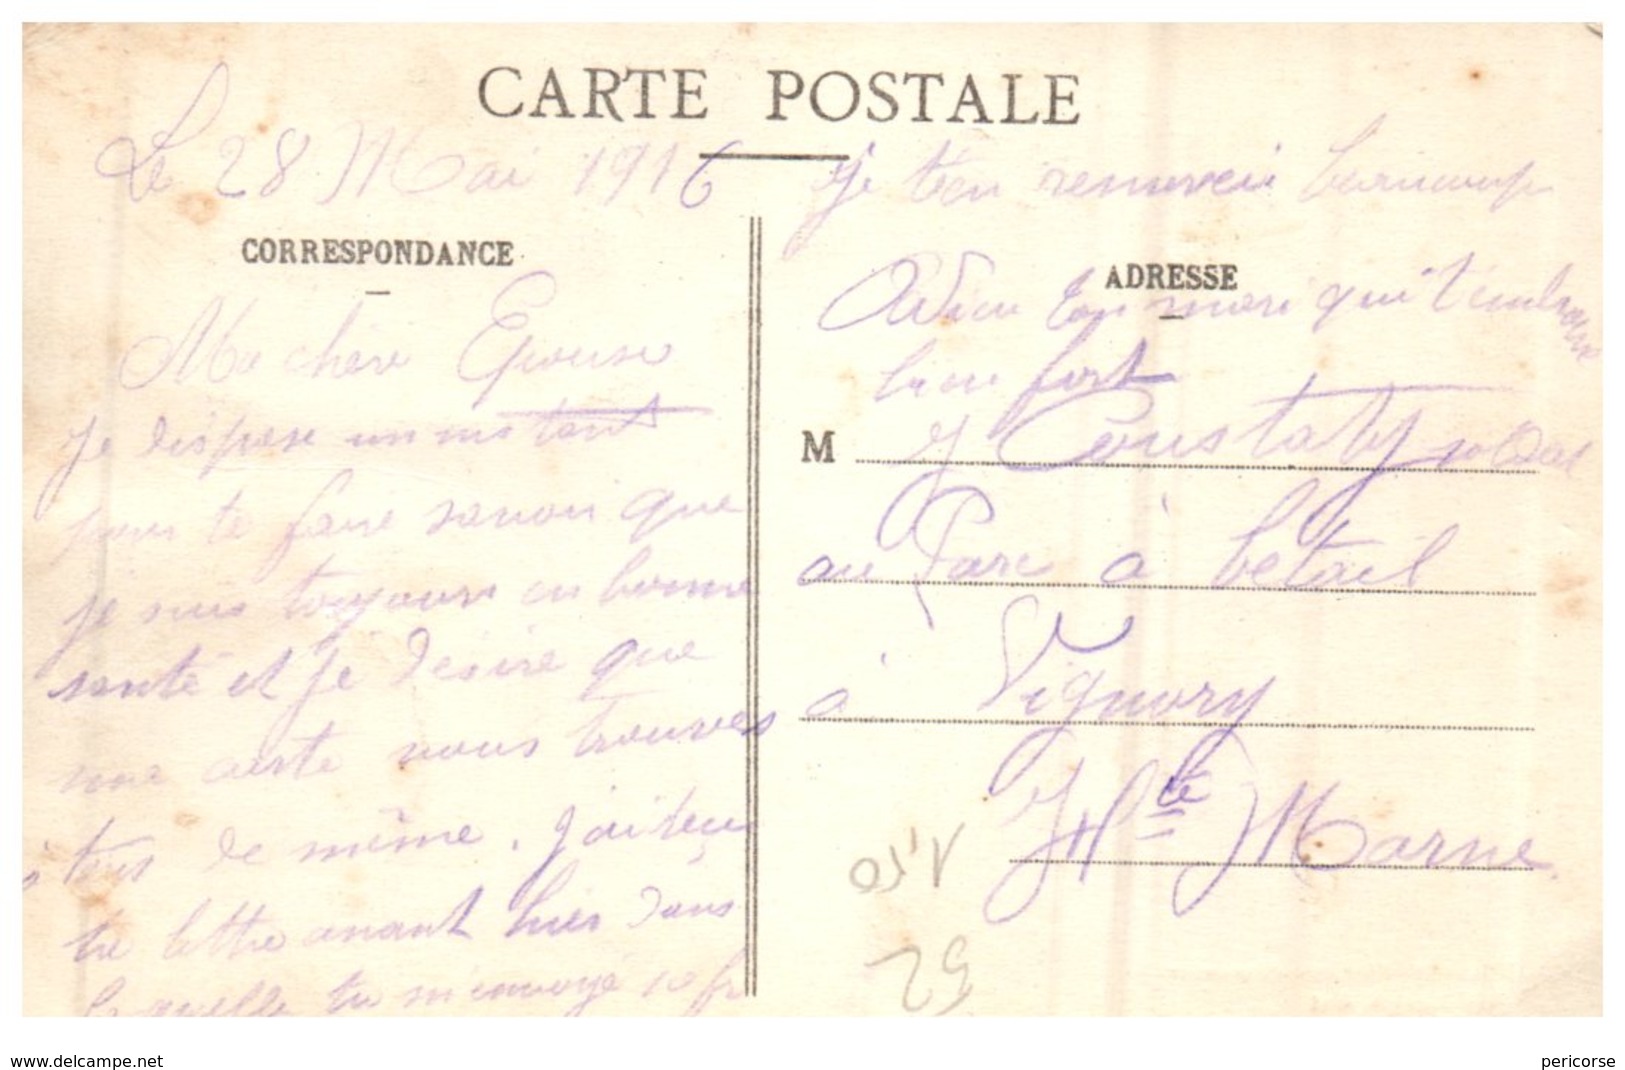 CARTE POSTALE
Le 28 Mai 1916
CORRESPONDANCE
Ma chère Epouse
je dispose un instant
pour te faire savoir que
je suis toujours en bonne
santé et je desire que
ma carte vous trouves
tous de même. j'ai reçu
ta lettre avant hier dans
laquelle tu m'envoyé 10 fr
je t'en remercie beaucoup
ADRESSE
Adieu ton mari qui t'embrasse
bien fort
M
J Coustaty soldat
au Parc à betail
à Vignory
Hte Marne
52
delcampe.net
pericorse